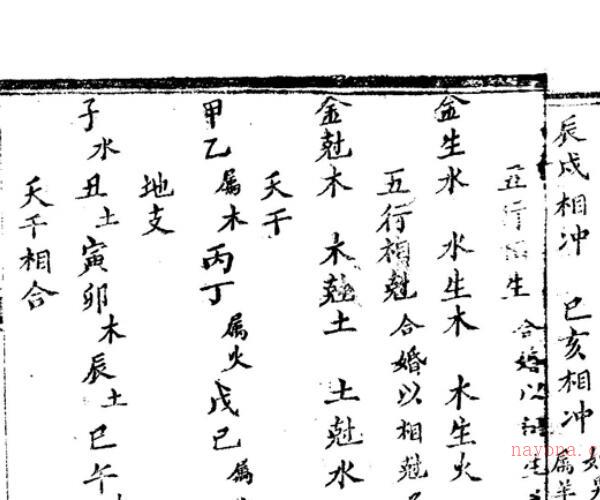 辰戌相冲 巳亥相冲
五行相生 合婚以相生
金生水 水生木 木生火
五行相尅 合婚以相尅
金尅木 木尅土 土尅水
天干
甲乙属木 丙丁属火 戊己属
地支
子水 丑土 寅卯木 辰土 巳午
天干相合
nayona.c